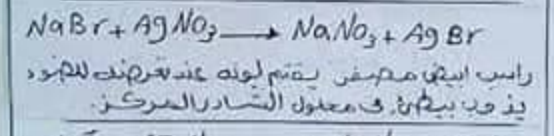 NaBr + AgNO₃ ⟶ NaNO₃ + AgBr
راسب ابيض مصفر يقتم لونه عند تعرضه للضوء
يذوب ببطئ فى محلول النشادر المركز.